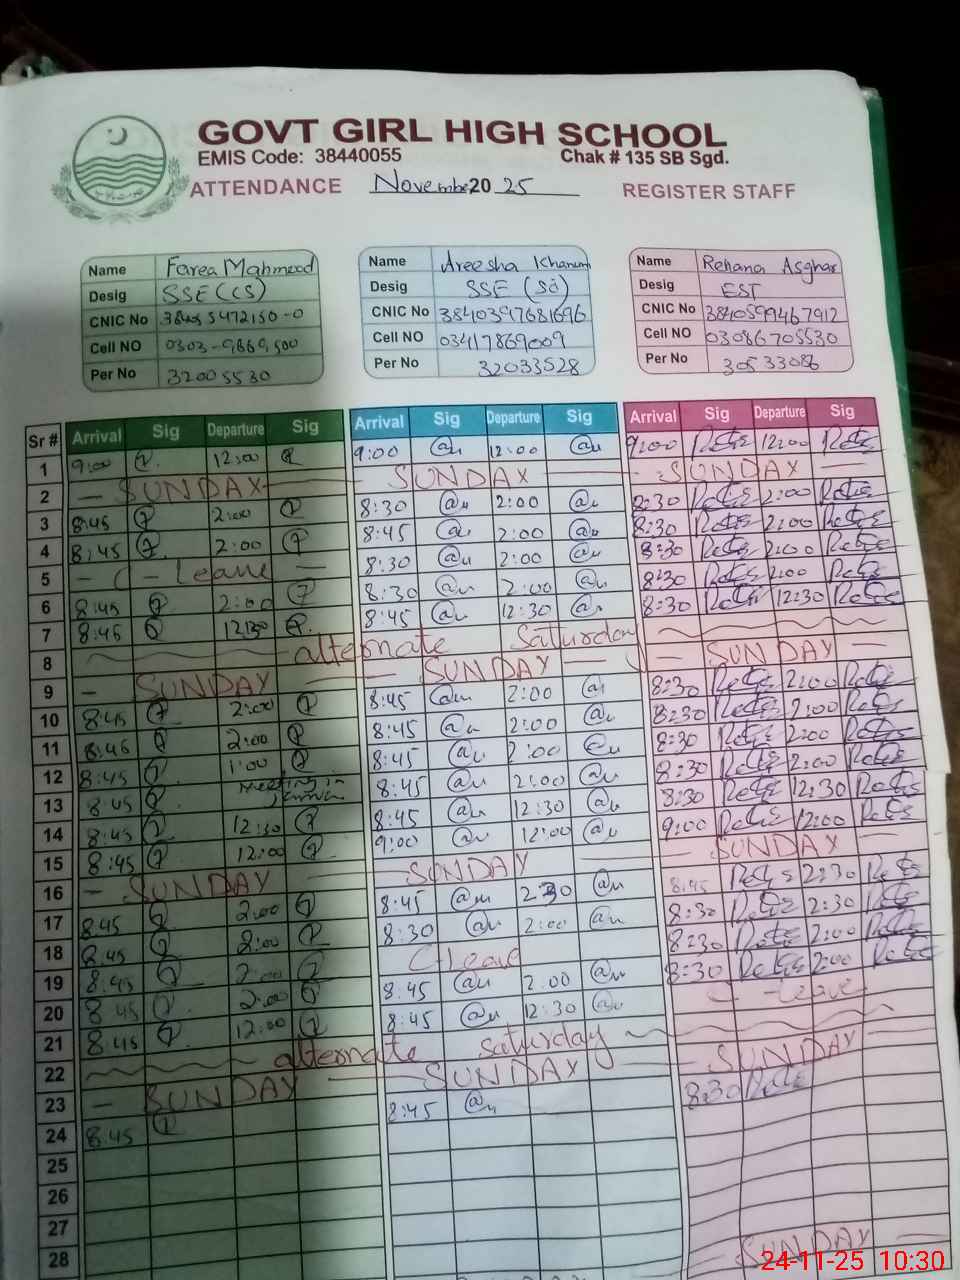 GOVT GIRL HIGH SCHOOL
EMIS Code: 38440055 Chak # 135 SB Sgd.
ATTENDANCE November 20 25 REGISTER STAFF
Name Farea Mahmood Name Areesha Khanum Name Rehana Asghar
Desig SSE (CS) Desig SSE Desig EST
CNIC No CNIC No 3840397681696 CNIC No 3840599467912
Cell NO Cell NO 03417869009 Cell NO 03086705530
Per No 32005530 Per No 32033528 Per No 30533086
Sr # Arrival Sig Departure Sig Arrival Sig Departure Sig Arrival Sig Departure Sig
1 9:00 12:00 9:00 12:00 9:00 12:00
2 SUNDAY SUNDAY SUNDAY
3 8:45 2:00 8:30 2:00 8:30 2:00
4 8:45 2:00 8:45 2:00 8:30 2:00
5 C-Leave 8:30 2:00 8:30 2:00
6 8:45 2:00 8:30 2:00 8:30 2:00
7 8:45 12:30 8:45 12:30 8:30 12:30
8 alternate Saturday
9 SUNDAY SUNDAY SUNDAY
10 8:45 2:00 8:45 2:00 8:30 2:00
11 8:45 2:00 8:45 2:00 8:30 2:00
12 8:45 1:00 8:45 2:00 8:30 2:00
13 8:45 meeting in 8:45 2:00 8:30 2:00
14 8:45 12:30 8:45 12:30 8:30 12:30
15 8:45 12:00 9:00 12:00 9:00 12:00
16 SUNDAY SUNDAY SUNDAY
17 8:45 2:00 8:45 2:30 8:45 2:30
18 8:45 2:00 8:30 2:00 8:30 2:30
19 8:45 2:00 C-Leave 8:30 2:00
20 8:45 2:00 8:45 2:00 8:30 2:00
21 8:45 12:00 8:45 12:30 C-Leave
22 alternate Saturday
23 SUNDAY SUNDAY SUNDAY
24 8:45 8:45 8:30
25
26
27
28
SUNDAY
24-11-25 10:30